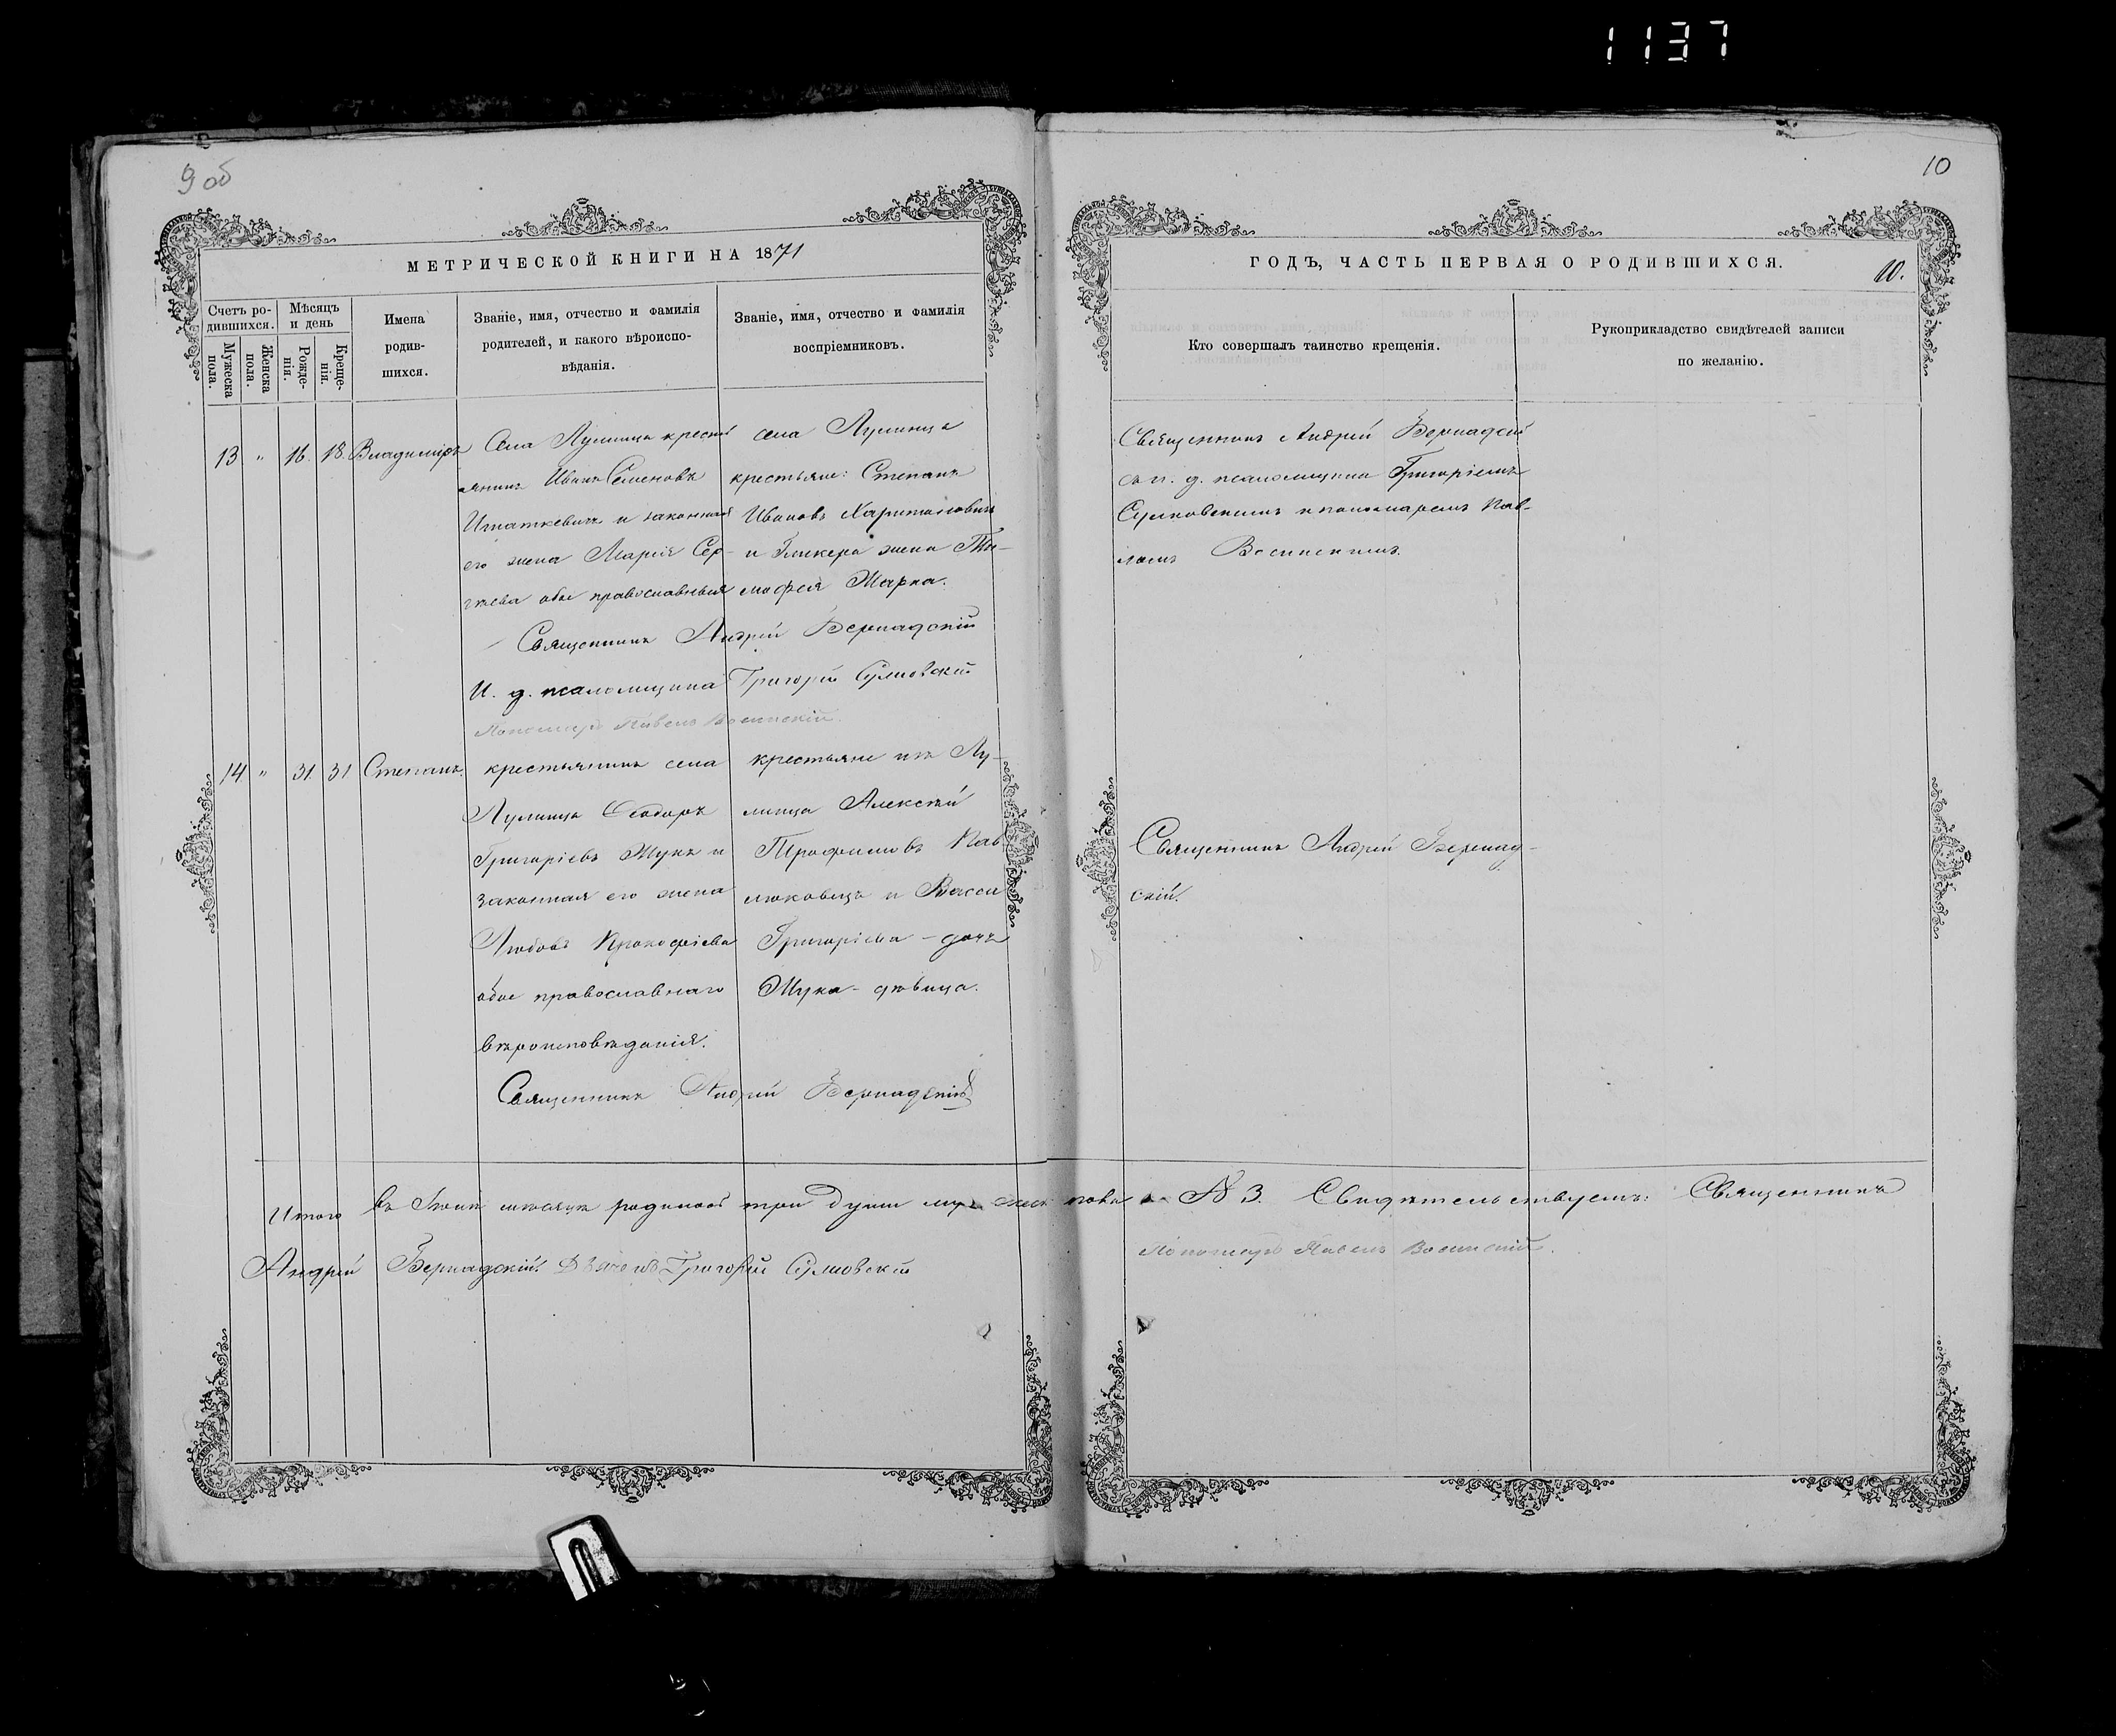 1137
9 об
10
МЕТРИЧЕСКОЙ КНИГИ НА 1871
ГОДЪ, ЧАСТЬ ПЕРВАЯ О РОДИВШИХСЯ.
10.
Счетъ ро-
дившихся.
Мужеска
пола.
Женска
пола.
Мѣсяцъ
и день
Рожде-
нія.
Креще-
нія.
Имена
родив-
шихся.
Званіе, имя, отчество и фамилія
родителей, и какого вѣроиспо-
вѣданія.
Званіе, имя, отчество и фамилія
воспріемниковъ.
Кто совершалъ таинство крещенія.
Рукоприкладство свидѣтелей записи
по желанію.
13 " 16. 18 Владиміръ
Села Лунинца крестья
янинъ Иванъ Семеновъ
Игнаткевичъ и законная
его жена Марія Сер-
гѣева обое православныя
села Лунинца
крестьяне: Степанъ
Ивановъ Харитоновичъ
и Гликера жена Ти-
мофея Жарка.
Священникъ Андрей Бернадскій
съ и. д. псаломщика Григоріемъ
и пономаремъ Пав-
ломъ
Священникъ Андрей Бернадскій
И. д. псаломщика Григорій
Пономарь Павелъ
14 " 31. 31 Степанъ.
крестьянинъ села
Лунинца Ѳеодоръ
Григоріевъ Жукъ и
законная его жена
Любовь Прокофіева
обое православнаго
вѣроисповѣданія.
крестьяне изъ Лу-
нинца Алексѣй
Трофимовъ Пав
люковецъ и Васса
Григоріева - дочь
Жука - дѣвица.
Священникъ Андрей Бернад-
скій.
Священникъ Андрей Бернадскій
Итого въ мѣсяцѣ родилось три души муж. пола № 3. Свидѣтельствуемъ: Священникъ
Андрей Бернадскій. Григорій
Пономарь Павелъ